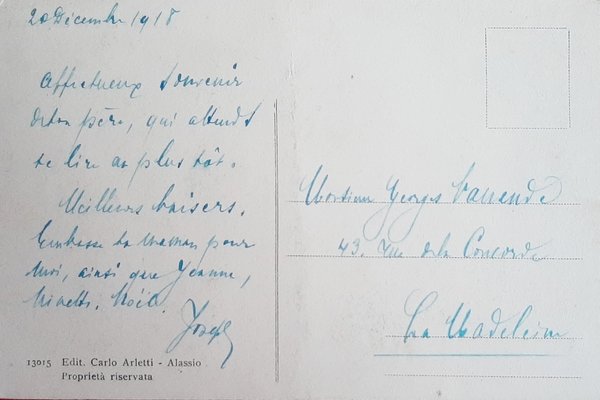 20 Décembre 1918
Affectueux Souvenir
de ton père, qui attend de
te lire au plus tôt.
Meilleurs baisers.
Embrasse ta Maman pour
Moi, ainsi que Jeanne,
Joseph
13015 Edit. Carlo Arletti - Alassio
Proprietà riservata
Monsieur Georges
43, rue de la Concorde
La Madeleine